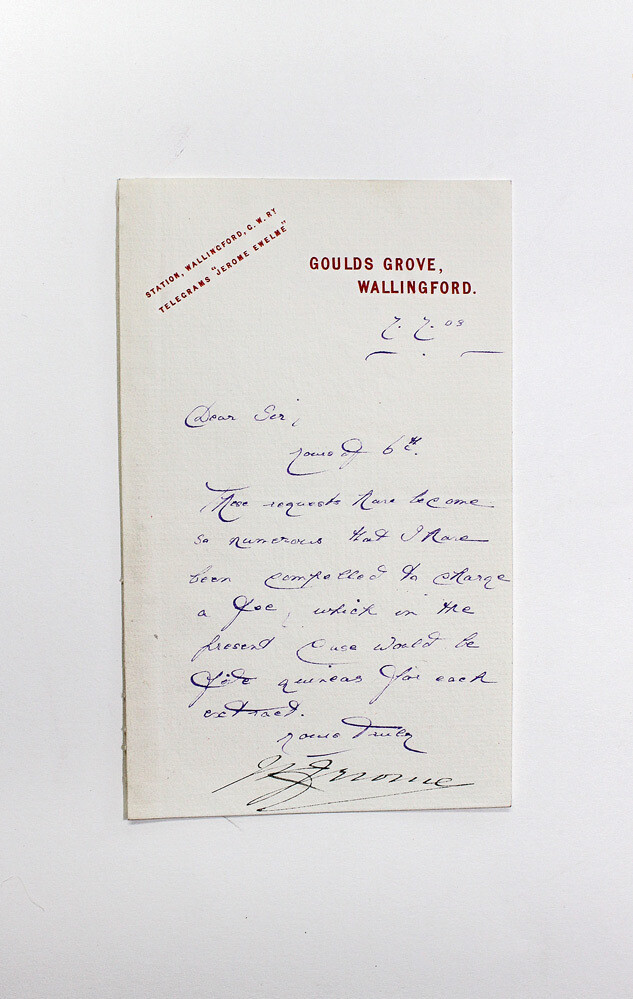 STATION, WALLINGFORD, G.W.RY
TELEGRAMS "JEROME EWELME"
GOULDS GROVE,
WALLINGFORD.
7. 7. 08
Dear Sir,
yours of 6th.
These requests have become
so numerous that I have
been compelled to charge
a fee, which in the
present case would be
five guineas for each
extract.
yours truly
JKJerome